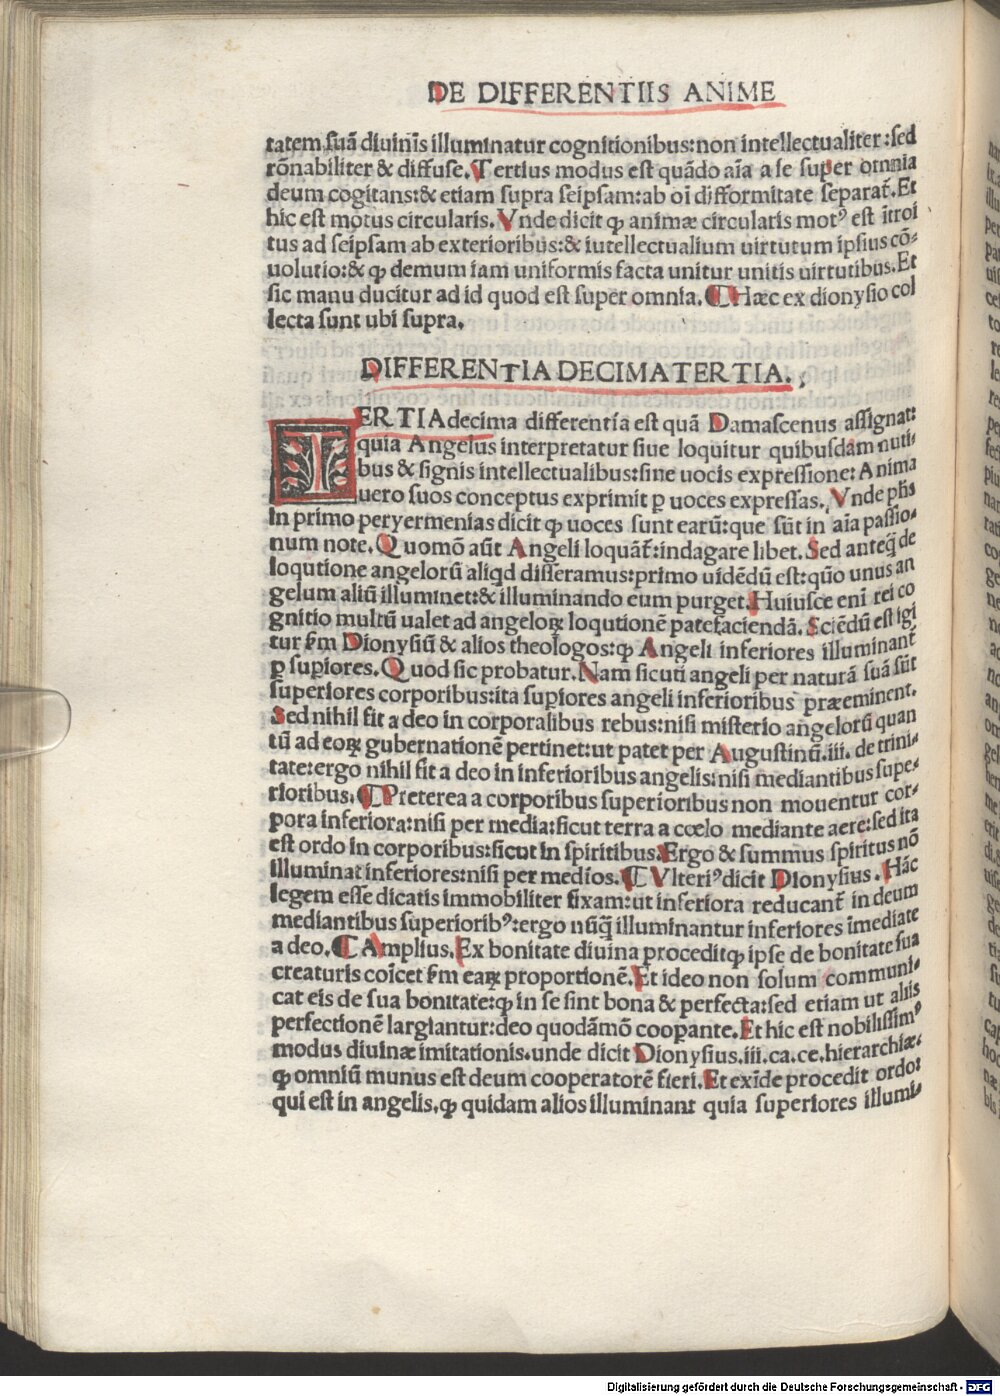 DE DIFFERENTIIS ANIME
tatem suā diuinis illuminatur cognitionibus:non intellectualiter:sed
rōnabiliter & diffuse. Tertius modus est quādo aīa a se super omnia
deum cogitans:& etiam supra seipsam:ab oī difformitate separat̄. Et
hic est motus circularis. Vnde dicit ꝙ animæ circularis motꝰ est ītroi
tus ad seipsam ab exterioribus:& iutellectualium uirtutum ipsius cō-
uolutio:& ꝙ demum iam uniformis facta unitur unitis uirtutibus. Et
sic manu ducitur ad id quod est super omnia. ¶ Hæc ex dionysio col
lecta sunt ubi supra.
DIFFERENTIA DECIMATERTIA.
TERTIA decima differentia est quā Damascenus assignat:
quia Angelus interpretatur siue loquitur quibusdam nuti-
bus & signis intellectualibus:sine uocis expressione: Anima
uero suos conceptus exprimit ꝑ uoces expressas. Vnde ph̄s
in primo peryermenias dicit ꝙ uoces sunt earū:que sūt in aīa passio-
num note. Quomō aūt Angeli loquāt̄:indagare libet. Sed anteq̄ de
loqutione angelorū aliqd disseramus:primo uidēdū est:quō unus an
gelum aliū illuminet:& illuminando eum purget. Huiusce enī rei co
gnitio multū ualet ad angeloꝝ loqutionē patefaciendā. Sciēdū est igi
tur s̄m Dionysiū & alios theologos:ꝙ Angeli inferiores illuminant̄
ꝑ suꝑiores. Quod sic probatur. Nam sicuti angeli per naturā suā sūt
superiores corporibus:ita suꝑiores angeli inferioribus præeminent.
Sed nihil fit a deo in corporalibus rebus:nisi misterio angelorū quan
tū ad eoꝝ gubernationē pertinet:ut patet per Augustinū.iii. de trini-
tate:ergo nihil fit a deo in inferioribus angelis:nisi mediantibus supe-
rioribus. ¶ Preterea a corporibus superioribus non mouentur cor-
pora inferiora:nisi per media:sicut terra a cœlo mediante aere:sed ita
est ordo in corporibus:sicut in spiritibus. Ergo & summus spiritus nō
illuminat inferiores:nisi per medios. ¶ Vlteriꝰ dicit Dionysius. Hāc
legem esse dicatis immobiliter fixam:ut inferiora reducant̄ in deum
mediantibus superioribꝰ:ergo nūq̄ illuminantur inferiores īmediate
a deo. ¶ Amplius. Ex bonitate diuina procedit ꝙ ipse de bonitate sua
creaturis coīcet s̄m eaꝝ proportionē. Et ideo non solum communi-
cat eis de sua bonitate:ꝙ in se sint bona & perfecta:sed etiam ut aliis
perfectionē largiantur:deo quodāmō cooꝑante. Et hic est nobilissimꝰ
modus diuinæ imitationis.unde dicit Dionysius.iii.ca.ce.hierarchiæ:
ꝙ omniū munus est deum cooperatorē fieri. Et exīde procedit ordo:
qui est in angelis.ꝙ quidam alios illuminant quia superiores illumi-
Digitalisierung gefördert durch die Deutsche Forschungsgemeinschaft - DFG